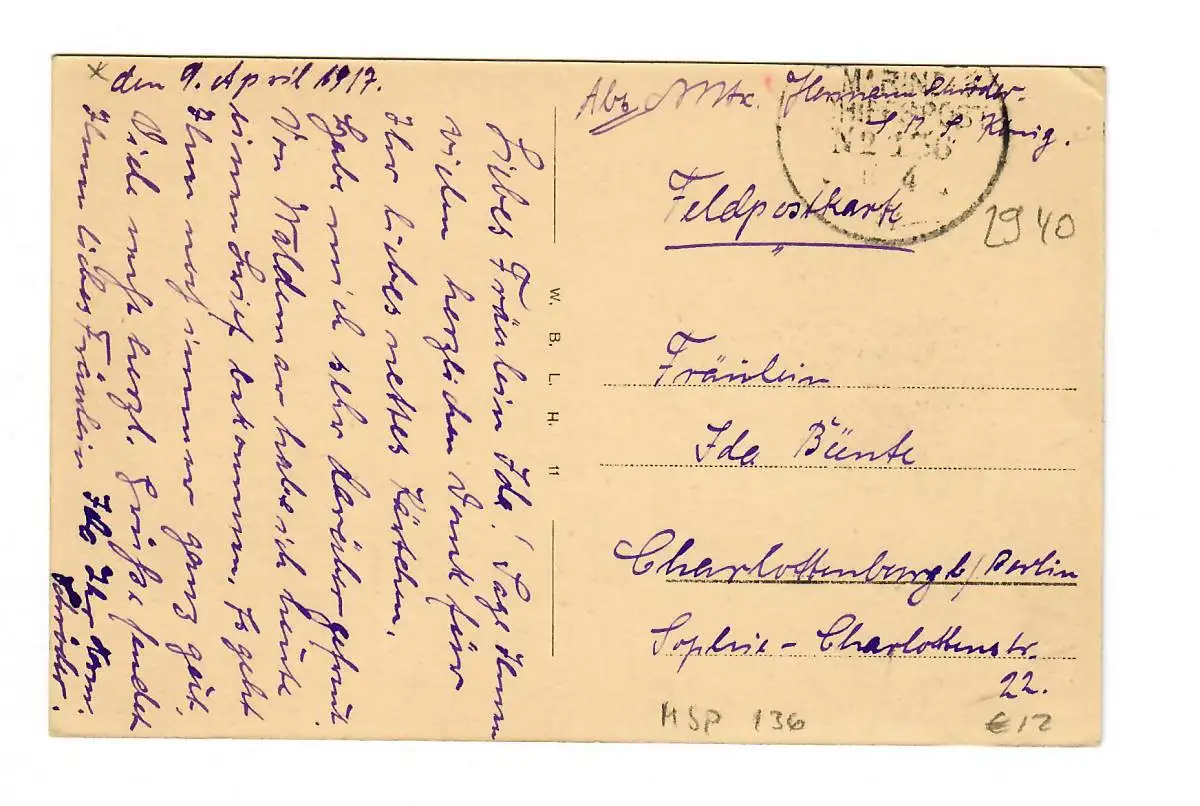 den 9. April 1917.
Liebes Fräulein Ida! Sage Ihnen
vielen herzlichen Dank für
Ihr liebes nettes Kärtchen.
Habe mich sehr darüber gefreut.
Von Waldemar habe ich heute
einen Brief bekommen. Es geht
Ihm noch immer ganz gut.
Viele recht herzl. Grüße sendet
Ihnen liebes Fräulein Ida Ihr Herm.
Schröder.
W. B. L. H. 11
Abs. Mtr. Hermann Schröder.
S.M.S. König.
MARINE-
SCHIFFSPOST
No 136
4
Feldpostkarte
2940
Fräulein
Ida Bünte
Charlottenburg b/Berlin
Sophie-Charlottenstr.
22.
MSP 136
€12